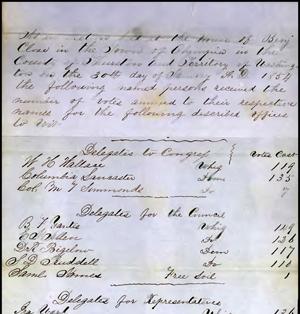 At an election held at the house of Benj
Close in the Town of Olympia in the
County of Thurston and Territory of Washing
ton on the 30th day of January A.D. 1854
the following named persons received the
number of votes annexed to their respective
names for the following discribed offices
to Wit
Delegates to Congress } Votes Cast
W H Wallace Whig 119
Columbia Lancaster Dem 135
Col M T Simmonds Do 7
Delegates for the Council
B F Yantis Whig
Do 136
D R Bigelow Dem 117
S D Ruddell Do
Saml James Free Soil 1
Delegates for Representatives
Whig